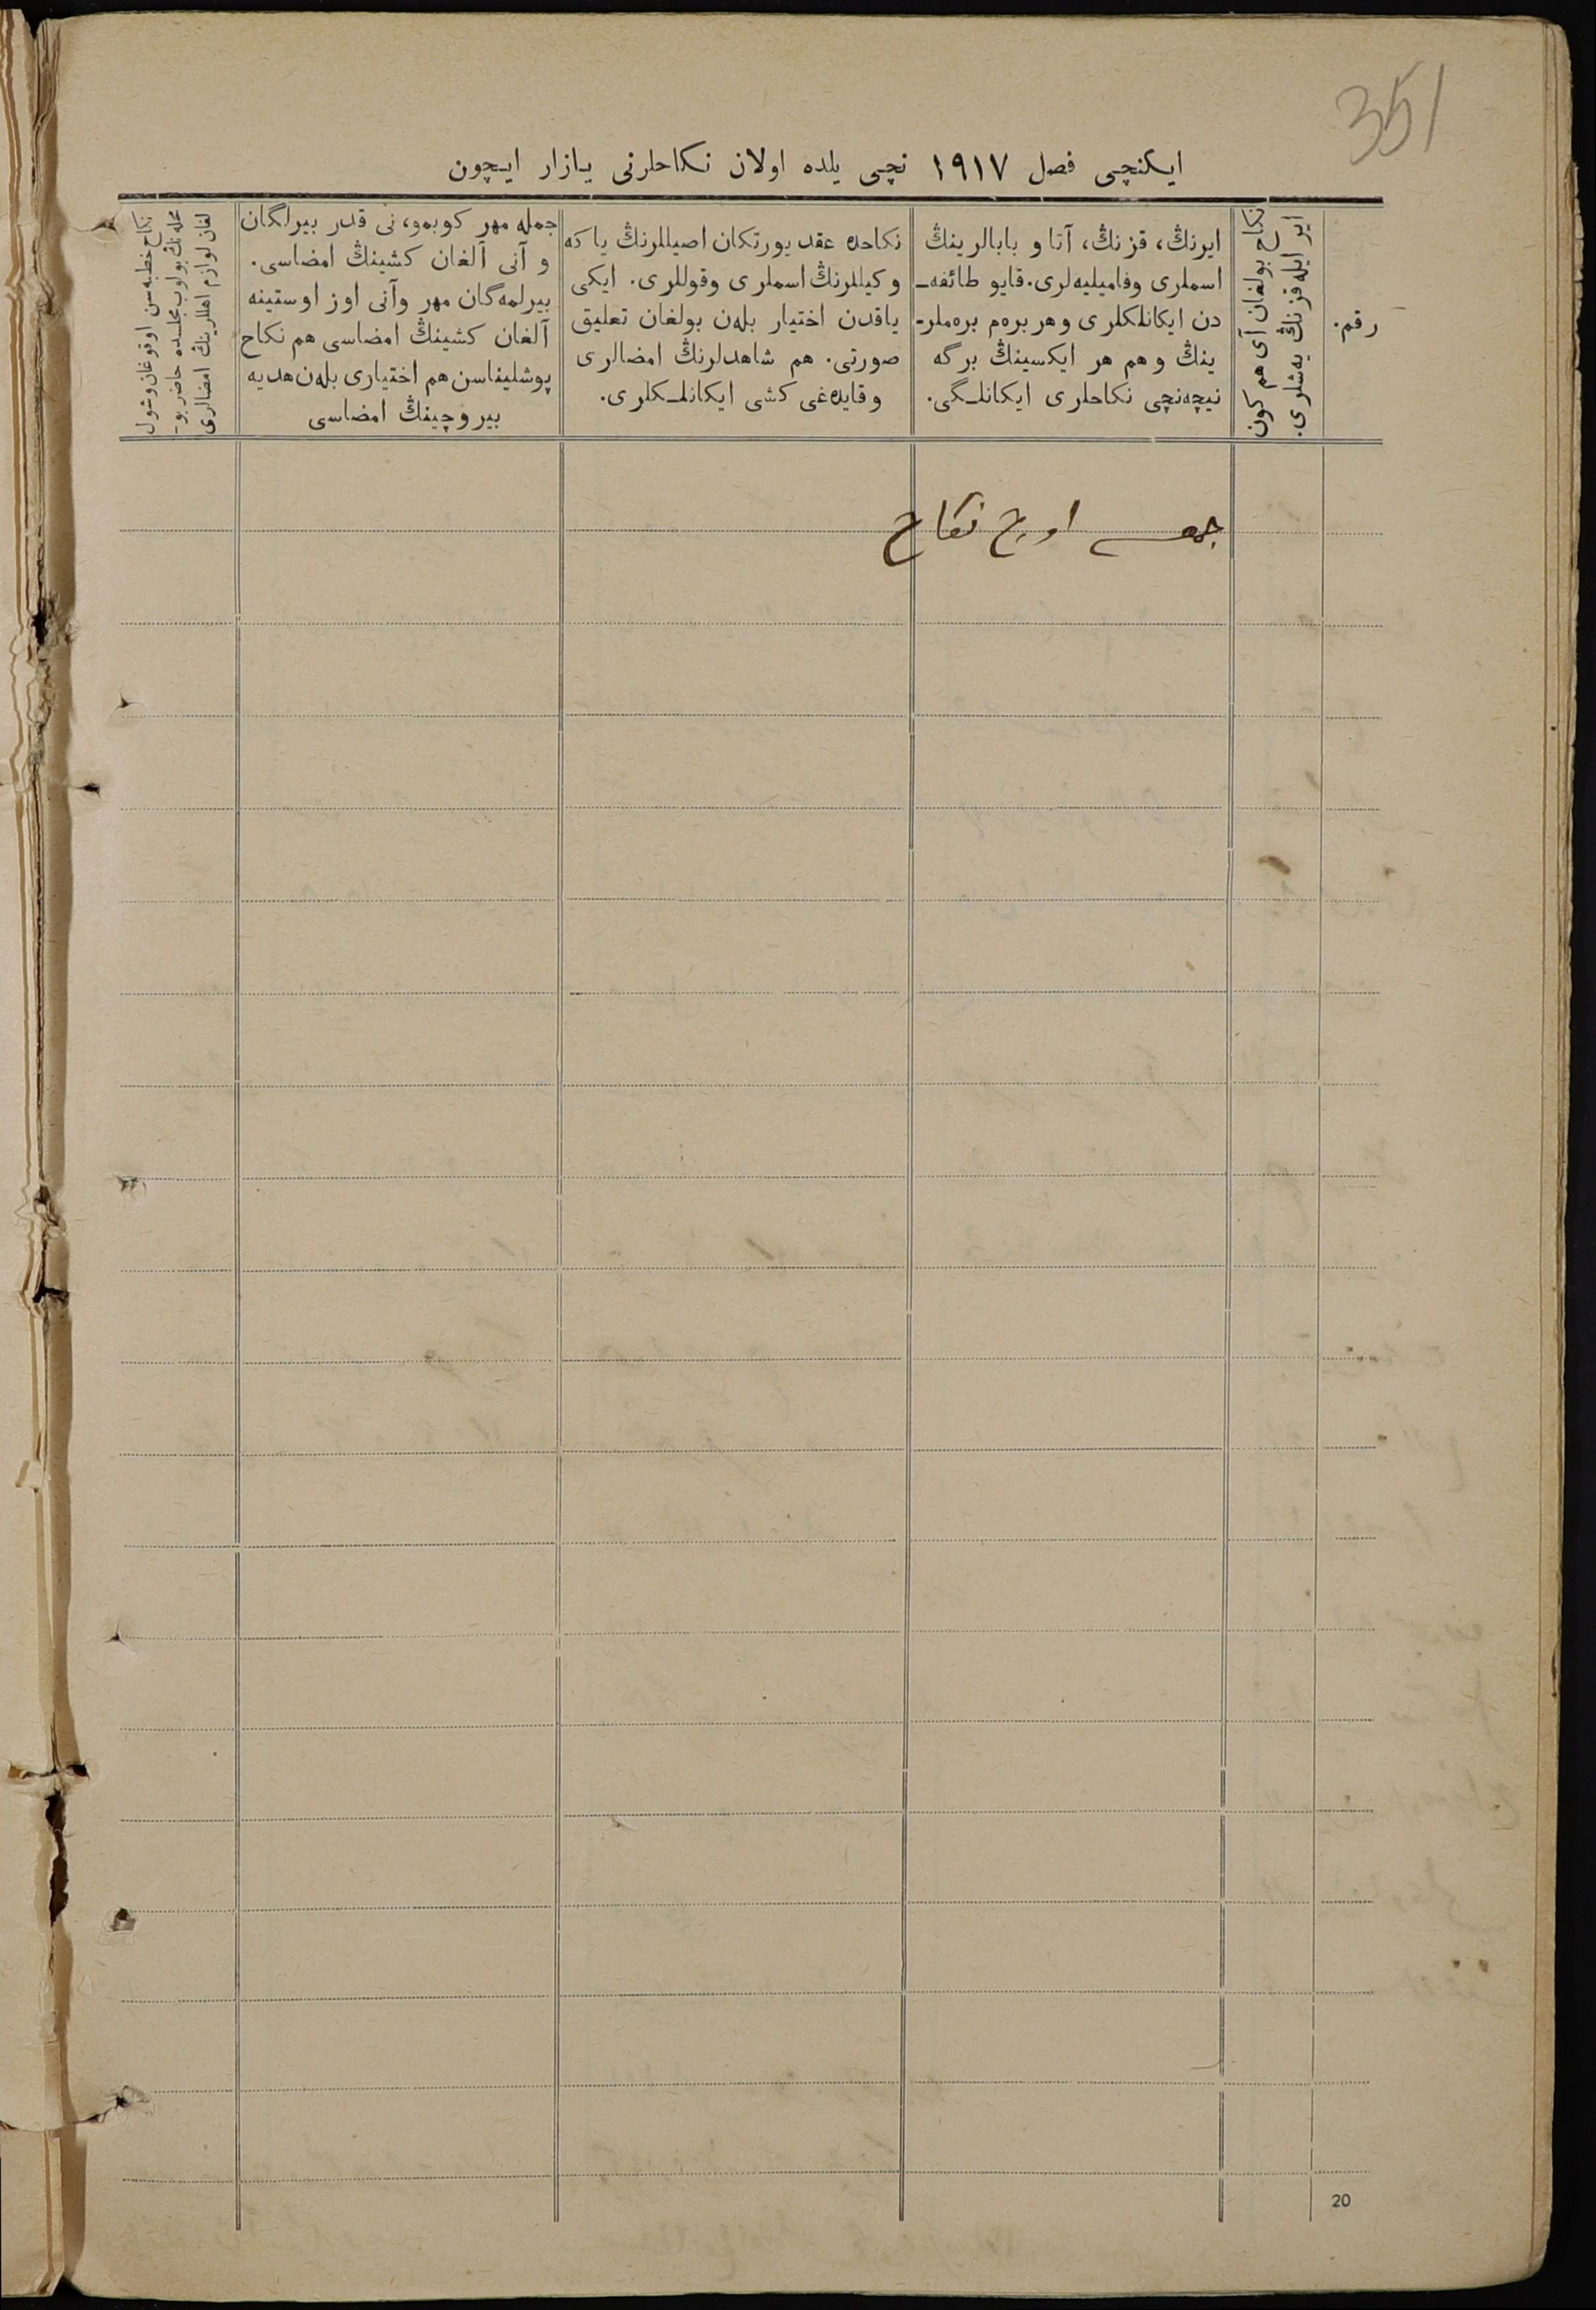 351
ايكنچی فصل ١٩١٧ نچی يلده اولان نكاحلرنی يازار ايچون
رقم.
نكاح بولغان آی هم كون
اير ايله قزنڭ يه‌شلری.
ايرنڭ، قزنڭ، آتا و بابالرينڭ
اسملری وفاميليه‌لری. قايو طائفه‌ـ
دن ايكانلكلری و هر بره‌م بره‌ملرـ
ينڭ و هم هر ايكسينڭ برگه
نيچه‌نچی نكاحلری ايكانلـگی.
نكاحده عقد يورتكان اصيللرنڭ ياكه
وكيللرنڭ اسملری وقوللری. ايكی
ياقدن اختيار بله‌ن بولغان تعليق
صورتی. هم شاهدلرنڭ امضالری
وقايده‌غی كشی ايكانلـكلری.
جمله مهر كوبمو، نی قدر بيرلگان
و آنی آلغان كشينڭ امضاسی.
بيرلمه‌گان مهر وآنی اوز اوستينه
آلغان كشينڭ امضاسی هم نكاح
پوشليناسن هم اختياری بله‌ن هديه
بيروچينڭ امضاسی
نكاح خطبه‌سن اوقوغان وشول
محله‌نڭ بولوب مجلسده حاضر بوـ
لغان لوازم اهللرينڭ امضالری
جمعسی اوچ نكاح
20